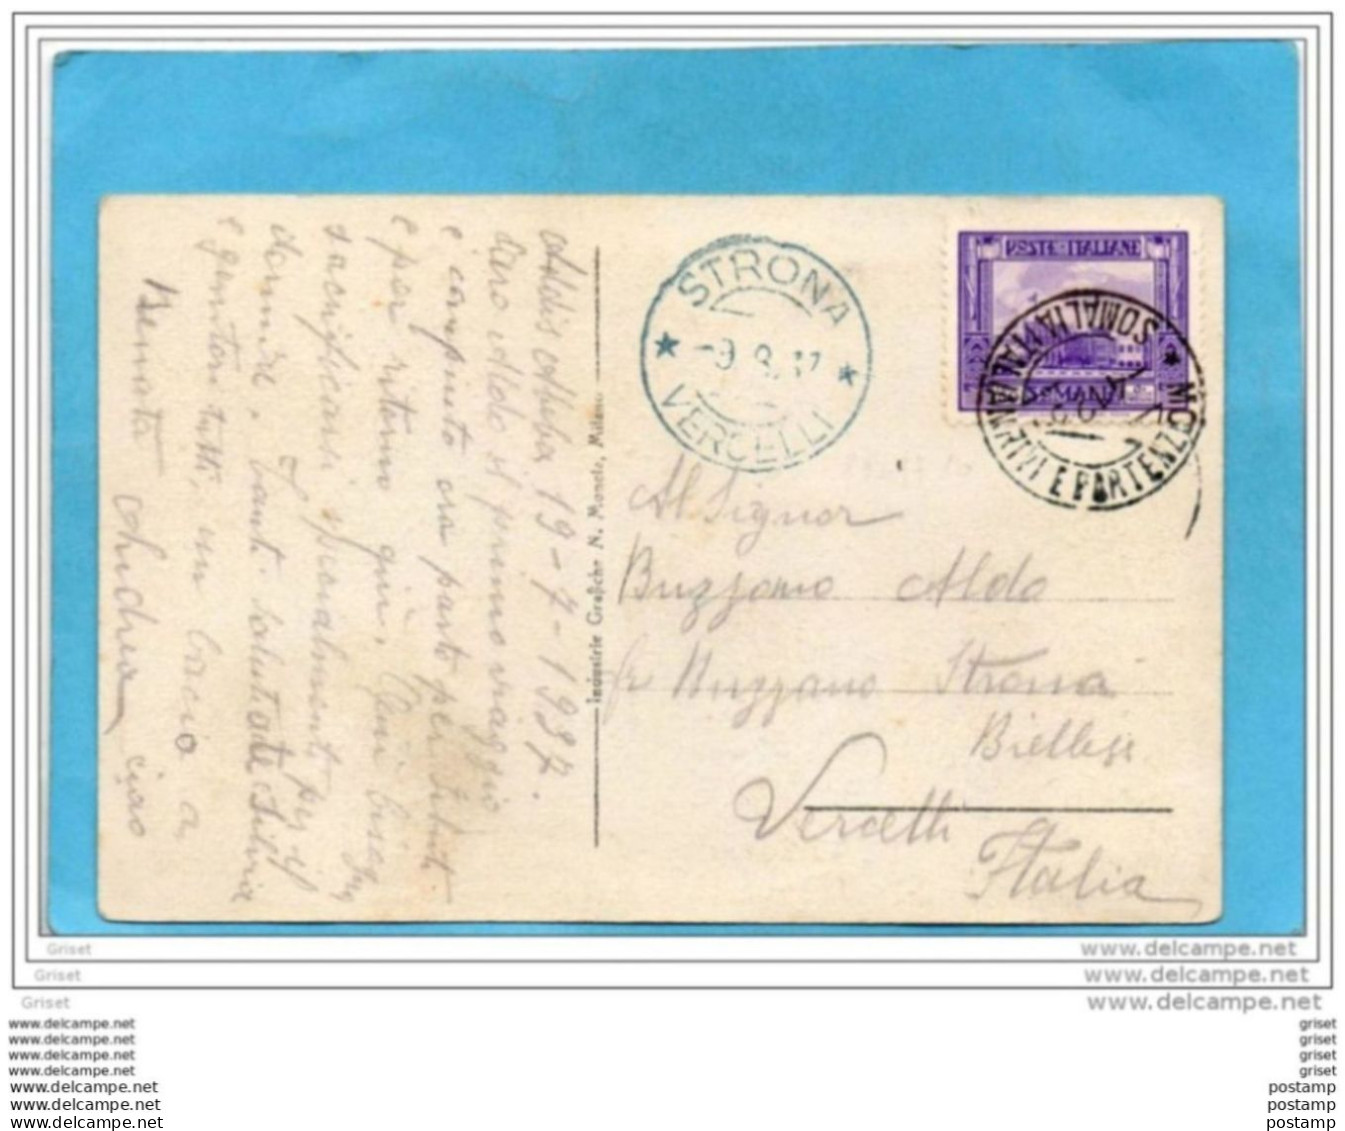 Addis Abeba 19-7-1937.
Caro Aldo il primo viaggio
è compiuto ora parto per
e per ritorno qui.
sacrificarsi specialmente per il
dormire. Tanti saluti a te Silvia
e genitori tutti, un bacio a
Renata Andrea ciao
Industrie Grafiche N. Moneta, Milano
STRONA
-9.8.37
VERCELLI
POSTE ITALIANE
SOMALIA
SOMALIA ITALIANA
ARRIVI E PARTENZE
Al Signor
Buzzano Aldo
fr Buzzano Strona
Biellese
Vercelli
Italia
Griset
www.delcampe.net
Griset
www.delcampe.net
Griset
www.delcampe.net
www.delcampe.net
griset
www.delcampe.net
griset
www.delcampe.net
griset
www.delcampe.net
griset
www.delcampe.net
postamp
www.delcampe.net
postamp
www.delcampe.net
postamp